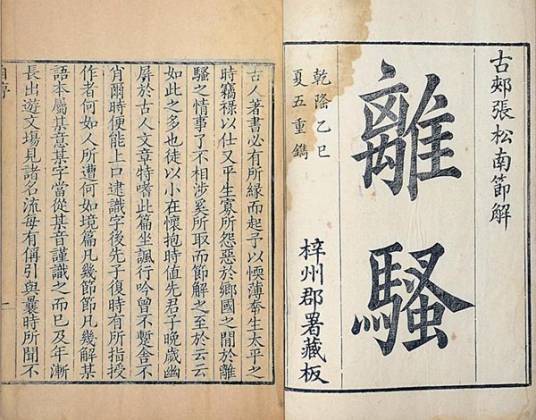 古郟張松南節解
離騷
乾隆乙巳
夏五重鐫
梓州郡署藏板
古人著書必有所緣而起予以愞薄奉生太平之
時竊祿以仕又平生寡所怨惡於鄉國之間於離
騷之情事了不相涉奚所取而節解之至於云云
如此之多也徒以小在懷抱時值先君子晚歲幽
屏於古人文章特嗜此篇坐諷行吟曾不暫舍不
肖爾時便能上口逮識字後先子復時有所指授
作者何如人所遭何如境篇凡幾節節凡幾解某
語本屬某意某字當從某音謹識之而已及年漸
長出遊文場見諸名流每有稱引與曩時所聞不
一